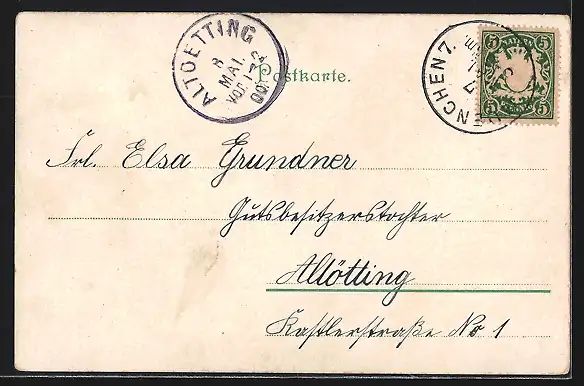 ALTOETTING
8
MAI.
VOR. 1-2
00.
Postkarte.
MUENCHEN 7.
5 BAYERN 5
5 5
Frl. Elsa Grundner
Gutsbesitzerstochter
Altötting
Kastlerstraße No 1